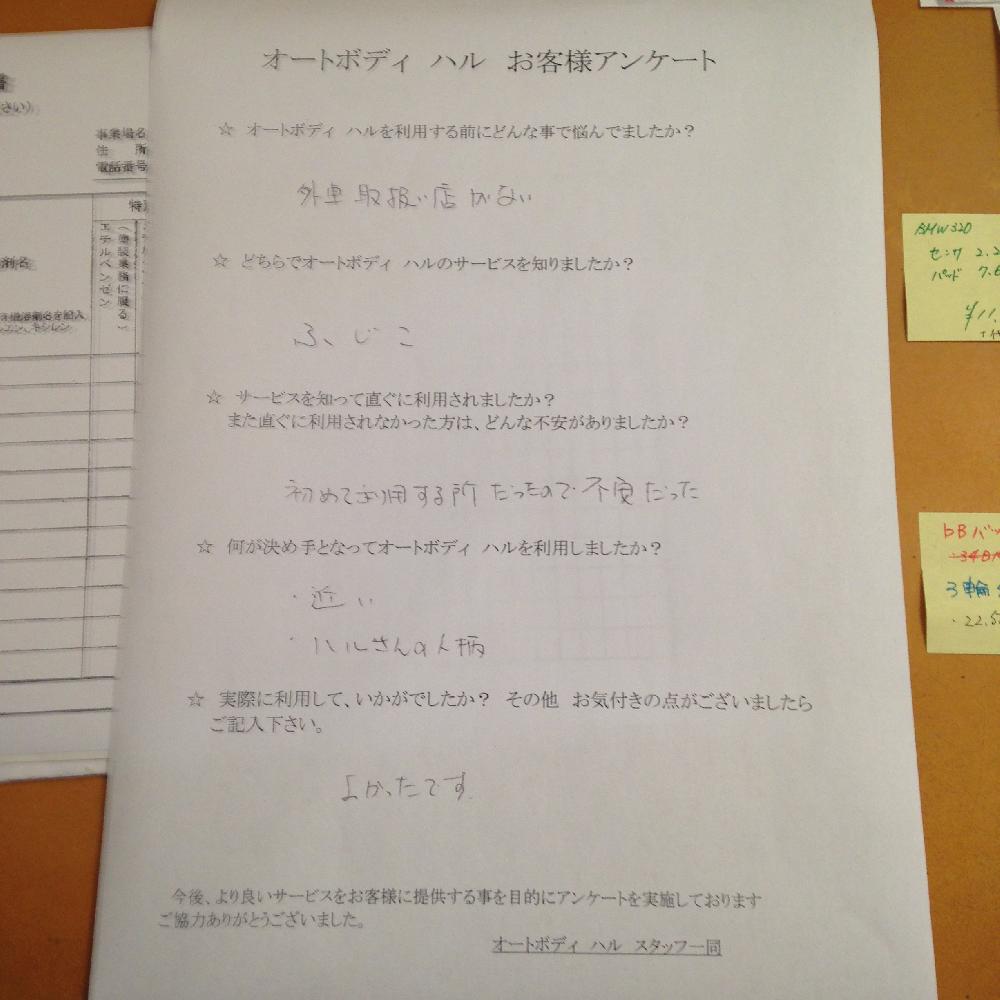 オートボディ ハル お客様アンケート
☆ オートボディ ハルを利用する前にどんな事で悩んでましたか？
外車取扱い店がない
☆ どちらでオートボディ ハルのサービスを知りましたか？
ふじこ
☆ サービスを知って直ぐに利用されましたか？
また直ぐに利用されなかった方は、どんな不安がありましたか？
初めて利用する所だったので不安だった
☆ 何が決め手となってオートボディ ハルを利用しましたか？
・近い
・ハルさんの人柄
☆ 実際に利用して、いかがでしたか？ その他 お気付きの点がございましたら
ご記入下さい。
よかったです
今後、より良いサービスをお客様に提供する事を目的にアンケートを実施しております
ご協力ありがとうございました。
オートボディ ハル スタッフ一同
さい)
事業場名
住 所
電話番号
特
(塗装業務に限る)
エチルベンゼン
剤名
BMW320
センサ 2.2
パッド 7.6
¥11,
bBバッ
3輪
・22.5